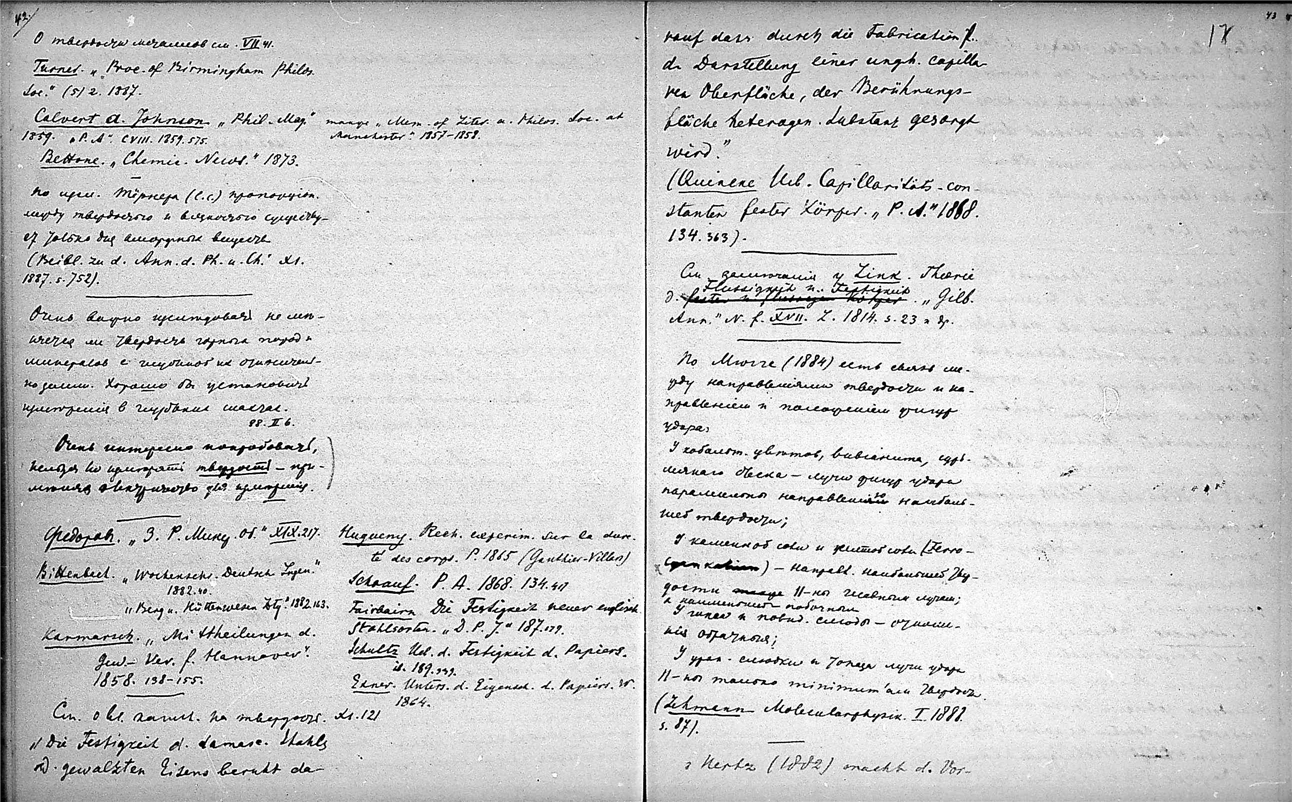 42.
О твердости металлов см. VII 41.
Turner. „Proc. of Birmingham Philos.
Soc." (5) 2. 1887.
Calvert d. Johnson „Phil. Mag."
1859. „P. A." CVIII. 1859. 575.
„Mem. of Liter. a. Philos. Soc. at
Manchester" 1857–1858.
Bottone. „Chemic. News." 1873.
По Тёрнера (l.c.)
между твердостью и вязкостью существу-
ет только для аморфных веществ
(Beibl. zu d. Ann. d. Ph. u. Ch. XI.
1887. s. 752).
Очень важно не мѣ-
няется ли твердость горных пород и
минералов с глубиной их
Хорошо бы установить
в глубоких шахтах.
88. II 6.
Очень интересно попробовать,
нельзя ли твердость – при-
электричество для
Федоров. „З. Р. Минер. Об." XIX. 217.
„Wochenschr. Deutsch. Ingen."
1882. 40.
„Berg u. Hüttenwesen Ztg." 1882. 163.
Karmarsch. „Mittheilungen d.
Gew- Ver. f. Hannover".
1858. 138–155.
Hugueny. Rech. experim. sur la dure-
té des corps. P. 1865 (Gauthier-Villars)
P. A. 1868. 134.
Fairbairn Die Festigkeit neuer englisch.
Stahlsorten. „D. P. J." 187.
Schultz Ueb. d. Festigkeit d. Papiers.
ib. 189.
Exner. Unters. d. Eigensch. d. Papiers. W.
1864.
См. о вл. на твердость. XI. 121
„Die Festigkeit d. damasc. Stahls
od. gewalzten Eisens beruht da-
43
18
rauf dass durch die Fabrication f.
d. Darstellung einer ungh. capilla-
ren Oberfläche, der Berührungs-
fläche heterogen. Substanz gesorgt
wird."
(Quincke Ueb. Capillaritäts-con-
stanten fester Körper. „P. A." 1868.
134. 363).
См. замечания у Link. Theorie
d. Flüssigkeit u. Festigkeit „Gilb.
Ann." N. f. XVII. L. 1814. s. 23 и др.
По Мюгге (1884) есть связь ме-
жду направлениями твердости и на-
правлением и положением фигур
удара:
У кобальт. цветов, вивианита, сурь-
мяного блеска – лучи фигур удара
параллельны направлению наиболь-
шей твердости;
У каменной соли и желтой соли (Ferro-
cyankalium) – направл. наибольшей твер-
дости ||-ны главным лучам;
а наименьшей побочным
У гипса и
обратныя;
У уран. слюдки и топаза лучи удара
||-ны только minimum'ам твердост.
(Lehmann Molecularphysik. I. 1888.
s. 87).
Hertz (1882) macht d. Vor-